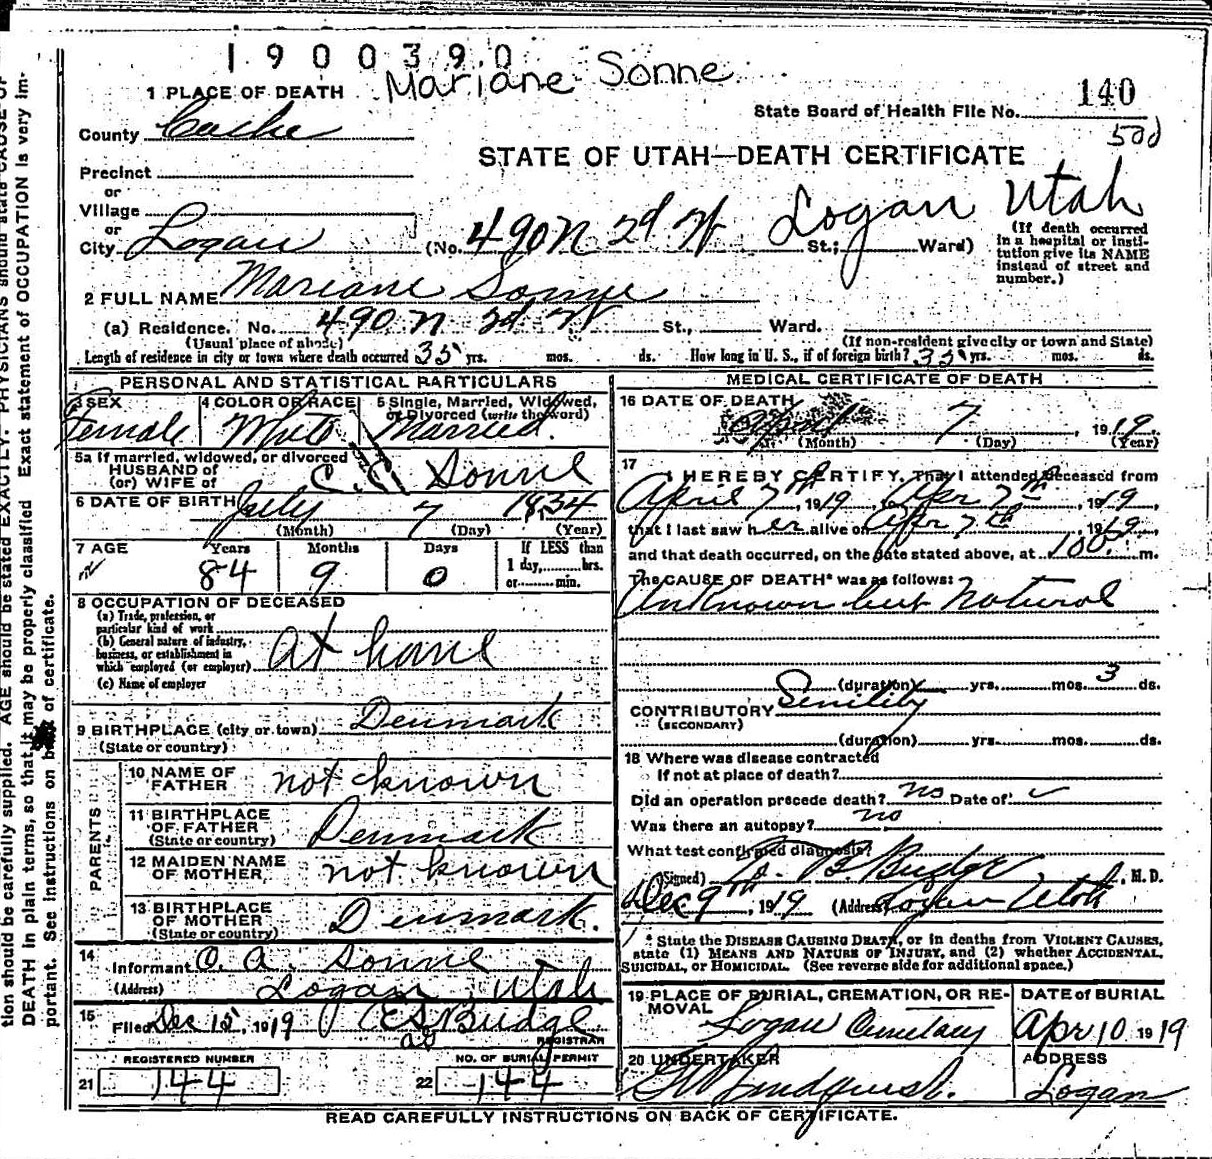 1900390
Mariane Sonne
1 PLACE OF DEATH
140
State Board of Health File No.
County Cache
500
STATE OF UTAH—DEATH CERTIFICATE
Precinct
or
Village
or
City Logan (No. 490 N 2d W St.; Ward) Logan Utah
(If death occurred in a hospital or institution give its NAME instead of street and number.)
2 FULL NAME Mariane Sonne
(a) Residence. No. 490 N 2d W St., Ward.
(Usual place of abode) (If non-resident give city or town and State)
Length of residence in city or town where death occurred 35 yrs. mos. ds. How long in U. S., if of foreign birth? 35 yrs. mos. ds.
PERSONAL AND STATISTICAL PARTICULARS
3 SEX 4 COLOR OR RACE 5 Single, Married, Widowed, or Divorced (write the word)
Female White Married.
5a If married, widowed, or divorced
HUSBAND of
(or) WIFE of C. C. Sonne
6 DATE OF BIRTH July 7 1834
(Month) (Day) (Year)
7 AGE Years Months Days If LESS than
1 day, hrs.
or min.
84 9 0
8 OCCUPATION OF DECEASED
(a) Trade, profession, or
particular kind of work
(b) General nature of industry,
business, or establishment in
which employed (or employer) At home
(c) Name of employer
9 BIRTHPLACE (city or town) Denmark
(State or country)
PARENTS
10 NAME OF FATHER not known
11 BIRTHPLACE OF FATHER (State or country) Denmark
12 MAIDEN NAME OF MOTHER not known
13 BIRTHPLACE OF MOTHER (State or country) Denmark.
14 Informant O. A. Sonne
(Address) Logan Utah
15 Filed Dec 15, 1919 Budge
REGISTRAR
REGISTERED NUMBER NO. OF BURIAL PERMIT
21 144 22 144
MEDICAL CERTIFICATE OF DEATH
16 DATE OF DEATH
April 7, 1919
(Month) (Day) (Year)
17 I HEREBY CERTIFY, That I attended deceased from
April 7th, 1919, Apr 7th 1919,
that I last saw her alive on Apr 7th, 1919,
and that death occurred, on the date stated above, at m.
The CAUSE OF DEATH* was as follows:
Unknown but Natural
(duration) yrs. mos. 3 ds.
CONTRIBUTORY Senility
(SECONDARY)
(duration) yrs. mos. ds.
18 Where was disease contracted
If not at place of death?
Did an operation precede death? no Date of
Was there an autopsy? no
What test confirmed diagnosis?
(Signed) Budge, M. D.
Dec 9th, 1919 (Address) Logan Utah
* State the DISEASE CAUSING DEATH, or in deaths from VIOLENT CAUSES,
state (1) MEANS AND NATURE OF INJURY, and (2) whether ACCIDENTAL,
SUICIDAL, or HOMICIDAL. (See reverse side for additional space.)
19 PLACE OF BURIAL, CREMATION, OR REMOVAL DATE of BURIAL
Logan Cemetery Apr 10 1919
20 UNDERTAKER ADDRESS
Logan
READ CAREFULLY INSTRUCTIONS ON BACK OF CERTIFICATE.
tion should be carefully supplied. AGE should be stated EXACTLY. PHYSICIANS should state CAUSE OF
DEATH in plain terms, so that it may be properly classified Exact statement of OCCUPATION is very im-
portant. See instructions on back of certificate.